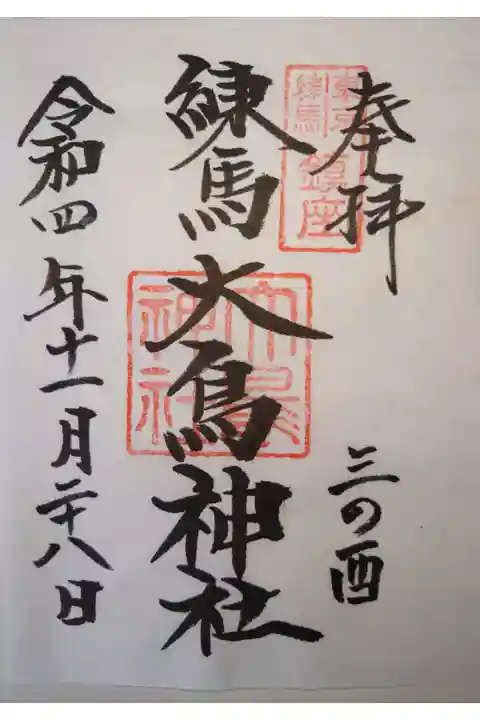 奉拝
三の酉
東京
練馬
鎮座
練馬大鳥神社
大鳥
神社
令和四年十一月二十八日